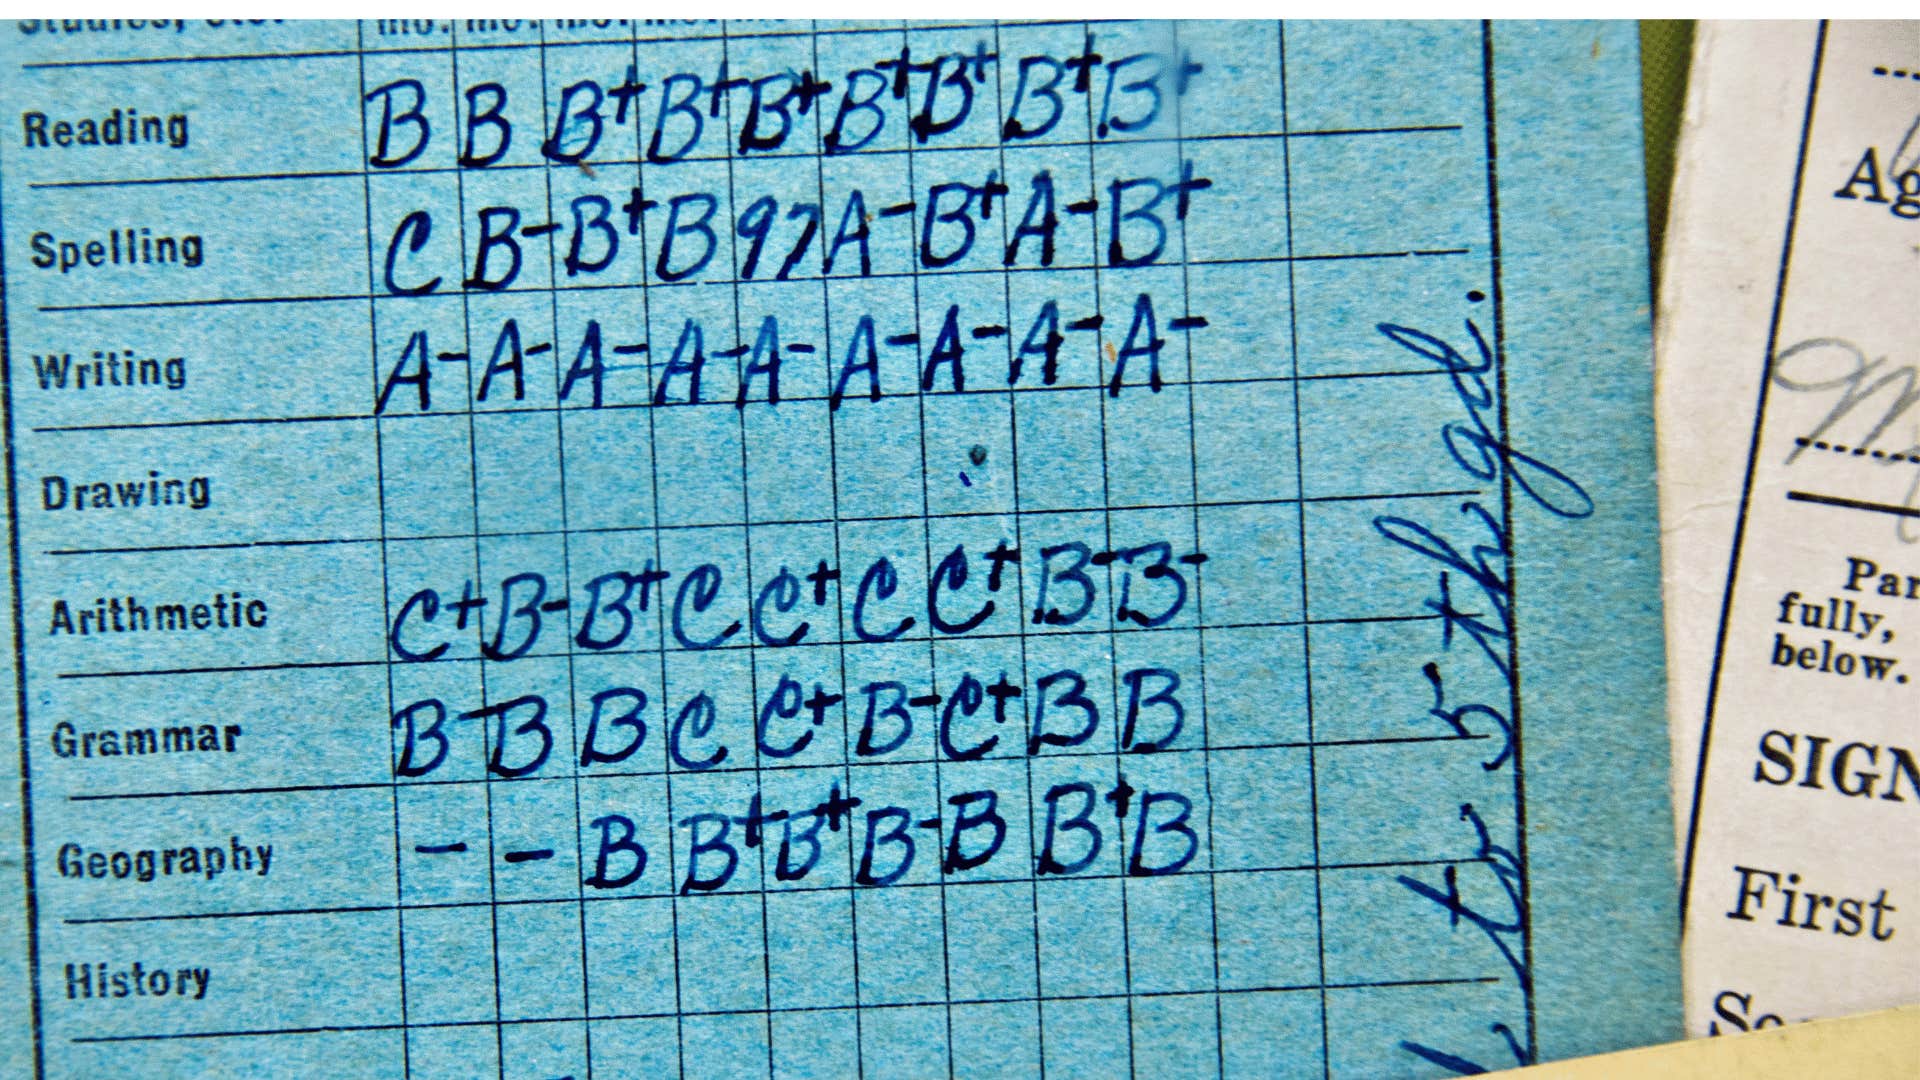 Reading B B B+ B+ B+ B+ B+ B+ B+
Spelling C B- B+ B 97 A- B+ A- B+
Writing A- A- A- A- A- A- A- A- A-
Drawing
Arithmetic C+ B- B+ C C+ C C+ B- B-
Grammar B- B B C C+ B- C+ B B
Geography - - B B+ B+ B- B B+ B
History
to 5th gd.
Ag
Par
fully,
below.
SIGN
First